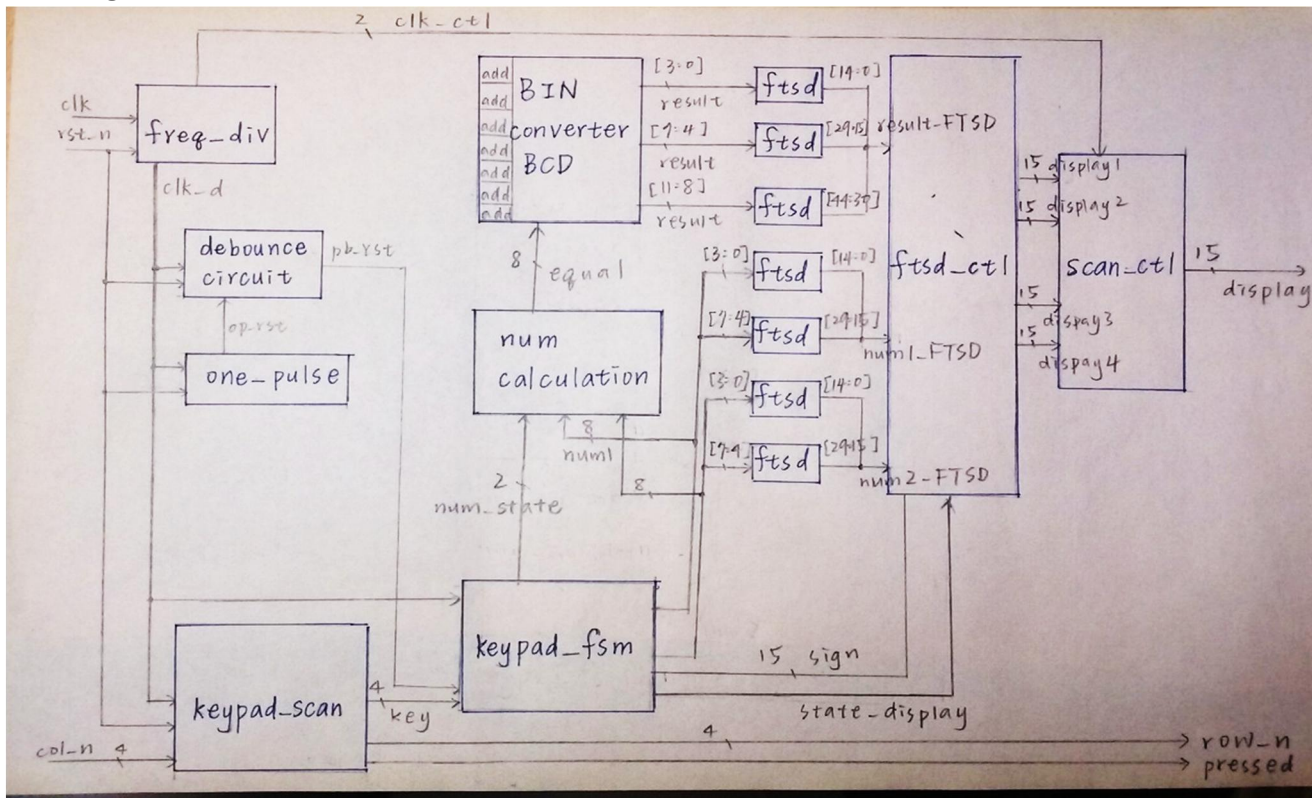 2 clk_ctl
clk
rst_n
freq_div
clk_d
debounce
circuit
pb_rst
op_rst
one_pulse
add
add
add
add
add
add
add
BIN
converter
BCD
[3:0]
result
[7:4]
result
[11:8]
result
ftsd
[14:0]
ftsd
[29:15]
ftsd
result_FTSD
8
equal
num
calculation
[3:0]
ftsd
[14:0]
[7:4]
ftsd
[29:15]
num1_FTSD
[3:0]
ftsd
[14:0]
[7:4]
ftsd
[29:15]
num2_FTSD
8
num1
8
2
num_state
ftsd_ctl
15 display1
15 display2
15
dispay3
15
dispay4
scan_ctl
15
display
keypad_fsm
15 sign
state_display
keypad_scan
4
key
col_n 4
4
row_n
pressed